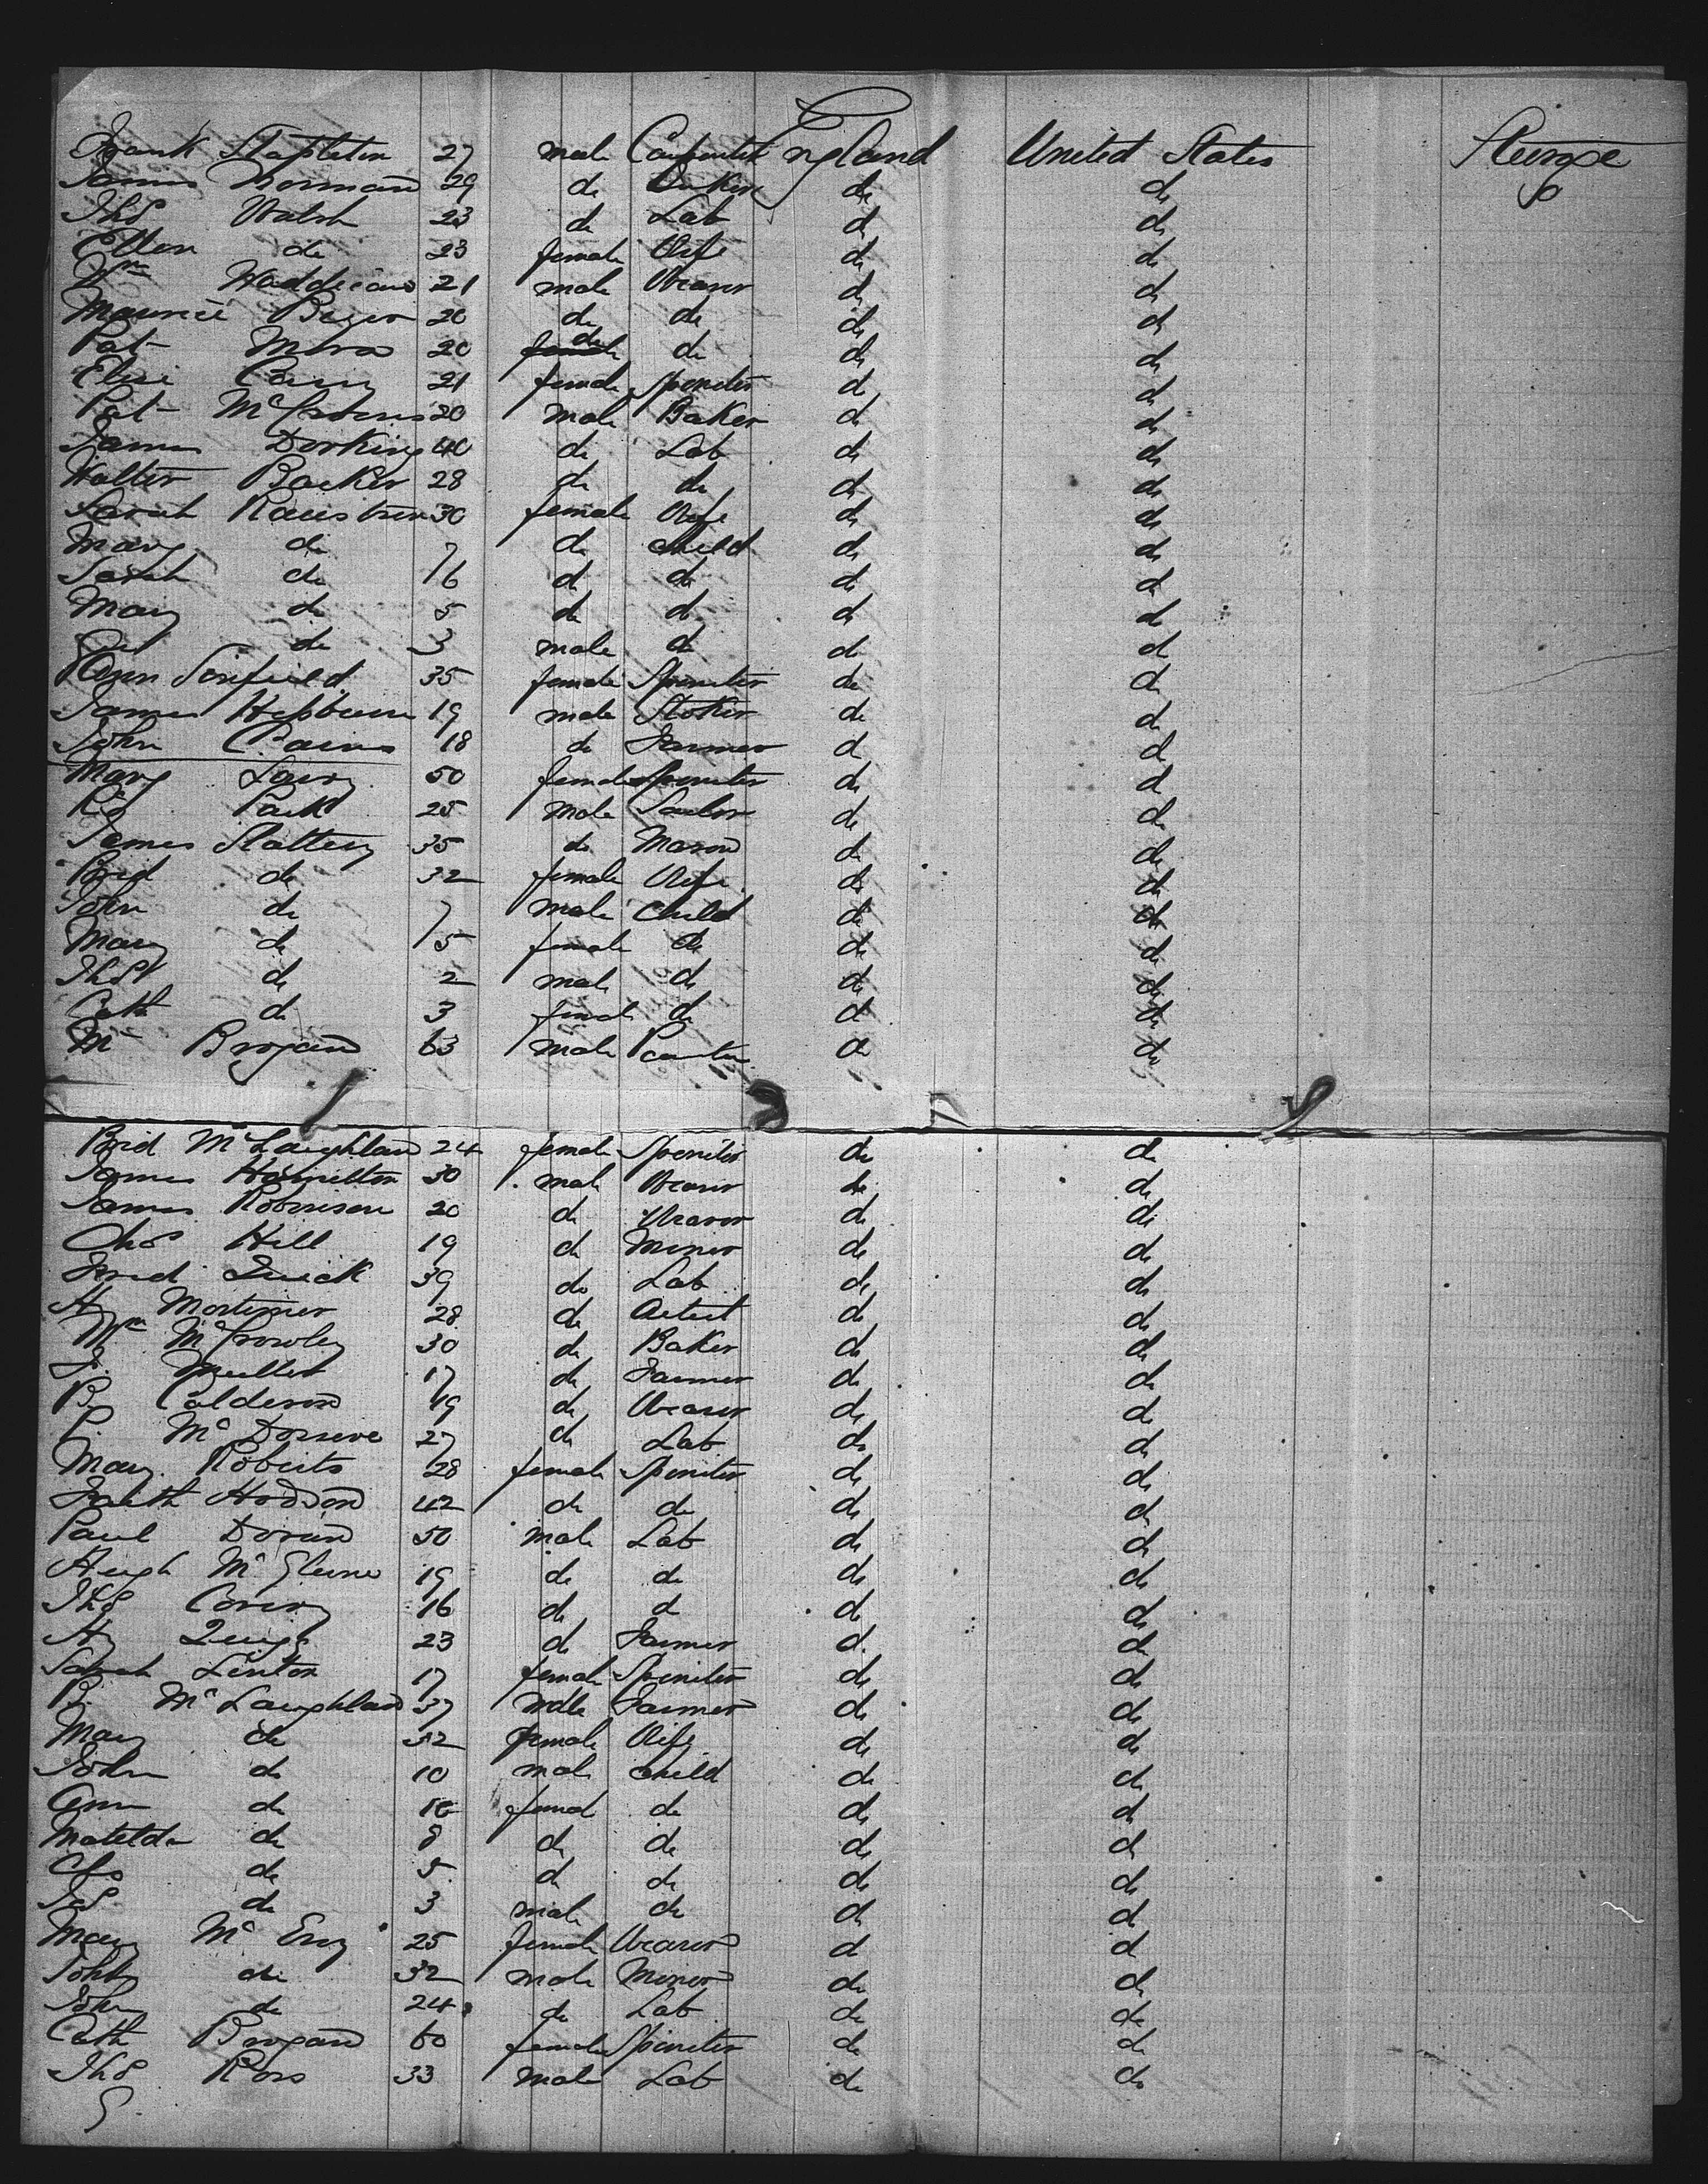 Frank Stapleton 27 male Carpenter England United States Steerage
James Norman 29 do do do
Thos Walsh 23 do Lab do do
Ellen do 23 female Wife do do
Wm 21 male Weaver do do
Maurice 20 do do do do
Pat 20 do do do do
Elise 21 female Spinster do do
Pat 20 male Baker do do
James Dorking 40 do Lab do do
Walter Barker 28 do do do do
Sarah 30 female Wife do do
Mary do 7 do child do do
Sarah do 6 do do do do
Mary do 5 do do do do
do 3 male do do do
Ann Sinfield 35 female Spinster do do
James Hepburn 19 male Stoker do do
John Cairns 18 do Farmer do do
Mary 50 female Spinster do do
25 male do do
James Slattery 35 do Mason do do
Brid do 32 female Wife do do
John do 7 male Child do do
Mary do 5 female do do do
Thos do 2 male do do do
Cath do 3 femal do do do
Brogan 63 male do do
Brid McLaughlan 24 female Spinster do do
James Hamilton 30 male Weaver do do
James Robinson 20 do Weaver do do
Chas Hill 19 do Miner do do
Fred Quick 39 do Lab do do
Hy Mortimer 28 do Artist do do
Wm McCrowley 30 do Baker do do
17 do Farmer do do
B. Calderon 19 do Weaver do do
P. 27 do Lab do do
Mary Roberts 28 female Spinster do do
Faith Hodson 42 do do do do
Paul Doran 50 male Lab do do
Hugh McGlune 19 do do do do
Thos 16 do do do do
Hy 23 do Farmer do do
Sarah Linton 17 female Spinster do do
McLaughlan 37 male Farmer do do
Mary do 32 female Wife do do
John do 10 male child do do
Ann do 10 femal do do do
Matilda do 8 do do do do
do 5 do do do do
Jas do 3 male do do do
Mary 25 female Weaver do do
John do 32 male Miner do do
John do 24 do Lab do do
Cath Brogan 60 female Spinster do do
Thos Ross 33 male Lab do do